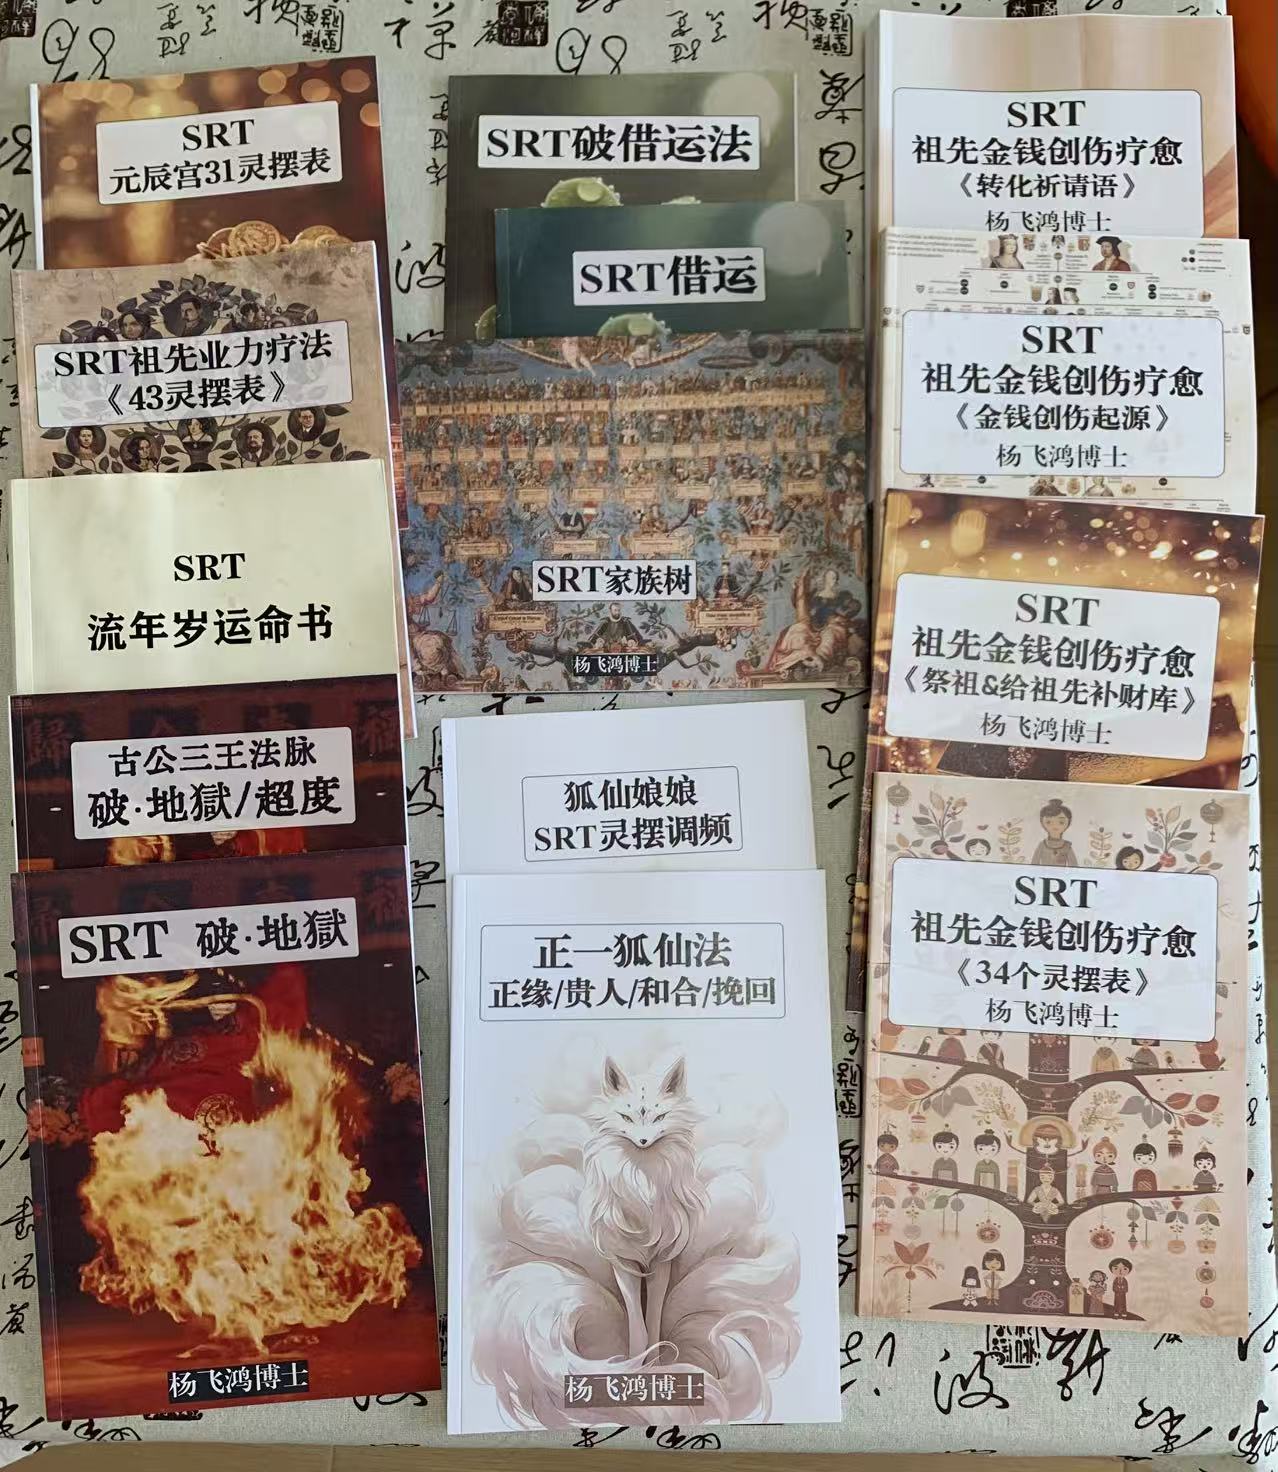 SRT
元辰宫31灵摆表
SRT祖先业力疗法
《43灵摆表》
SRT
流年岁运命书
古公三王法脉
破·地獄/超度
SRT 破·地獄
杨飞鸿博士
SRT破借运法
SRT借运
SRT家族树
杨飞鸿博士
狐仙娘娘
SRT灵摆调频
正一狐仙法
正缘/贵人/和合/挽回
杨飞鸿博士
SRT
祖先金钱创伤疗愈
《转化祈请语》
杨飞鸿博士
SRT
祖先金钱创伤疗愈
《金钱创伤起源》
杨飞鸿博士
SRT
祖先金钱创伤疗愈
《祭祖&给祖先补财库》
杨飞鸿博士
SRT
祖先金钱创伤疗愈
《34个灵摆表》
杨飞鸿博士